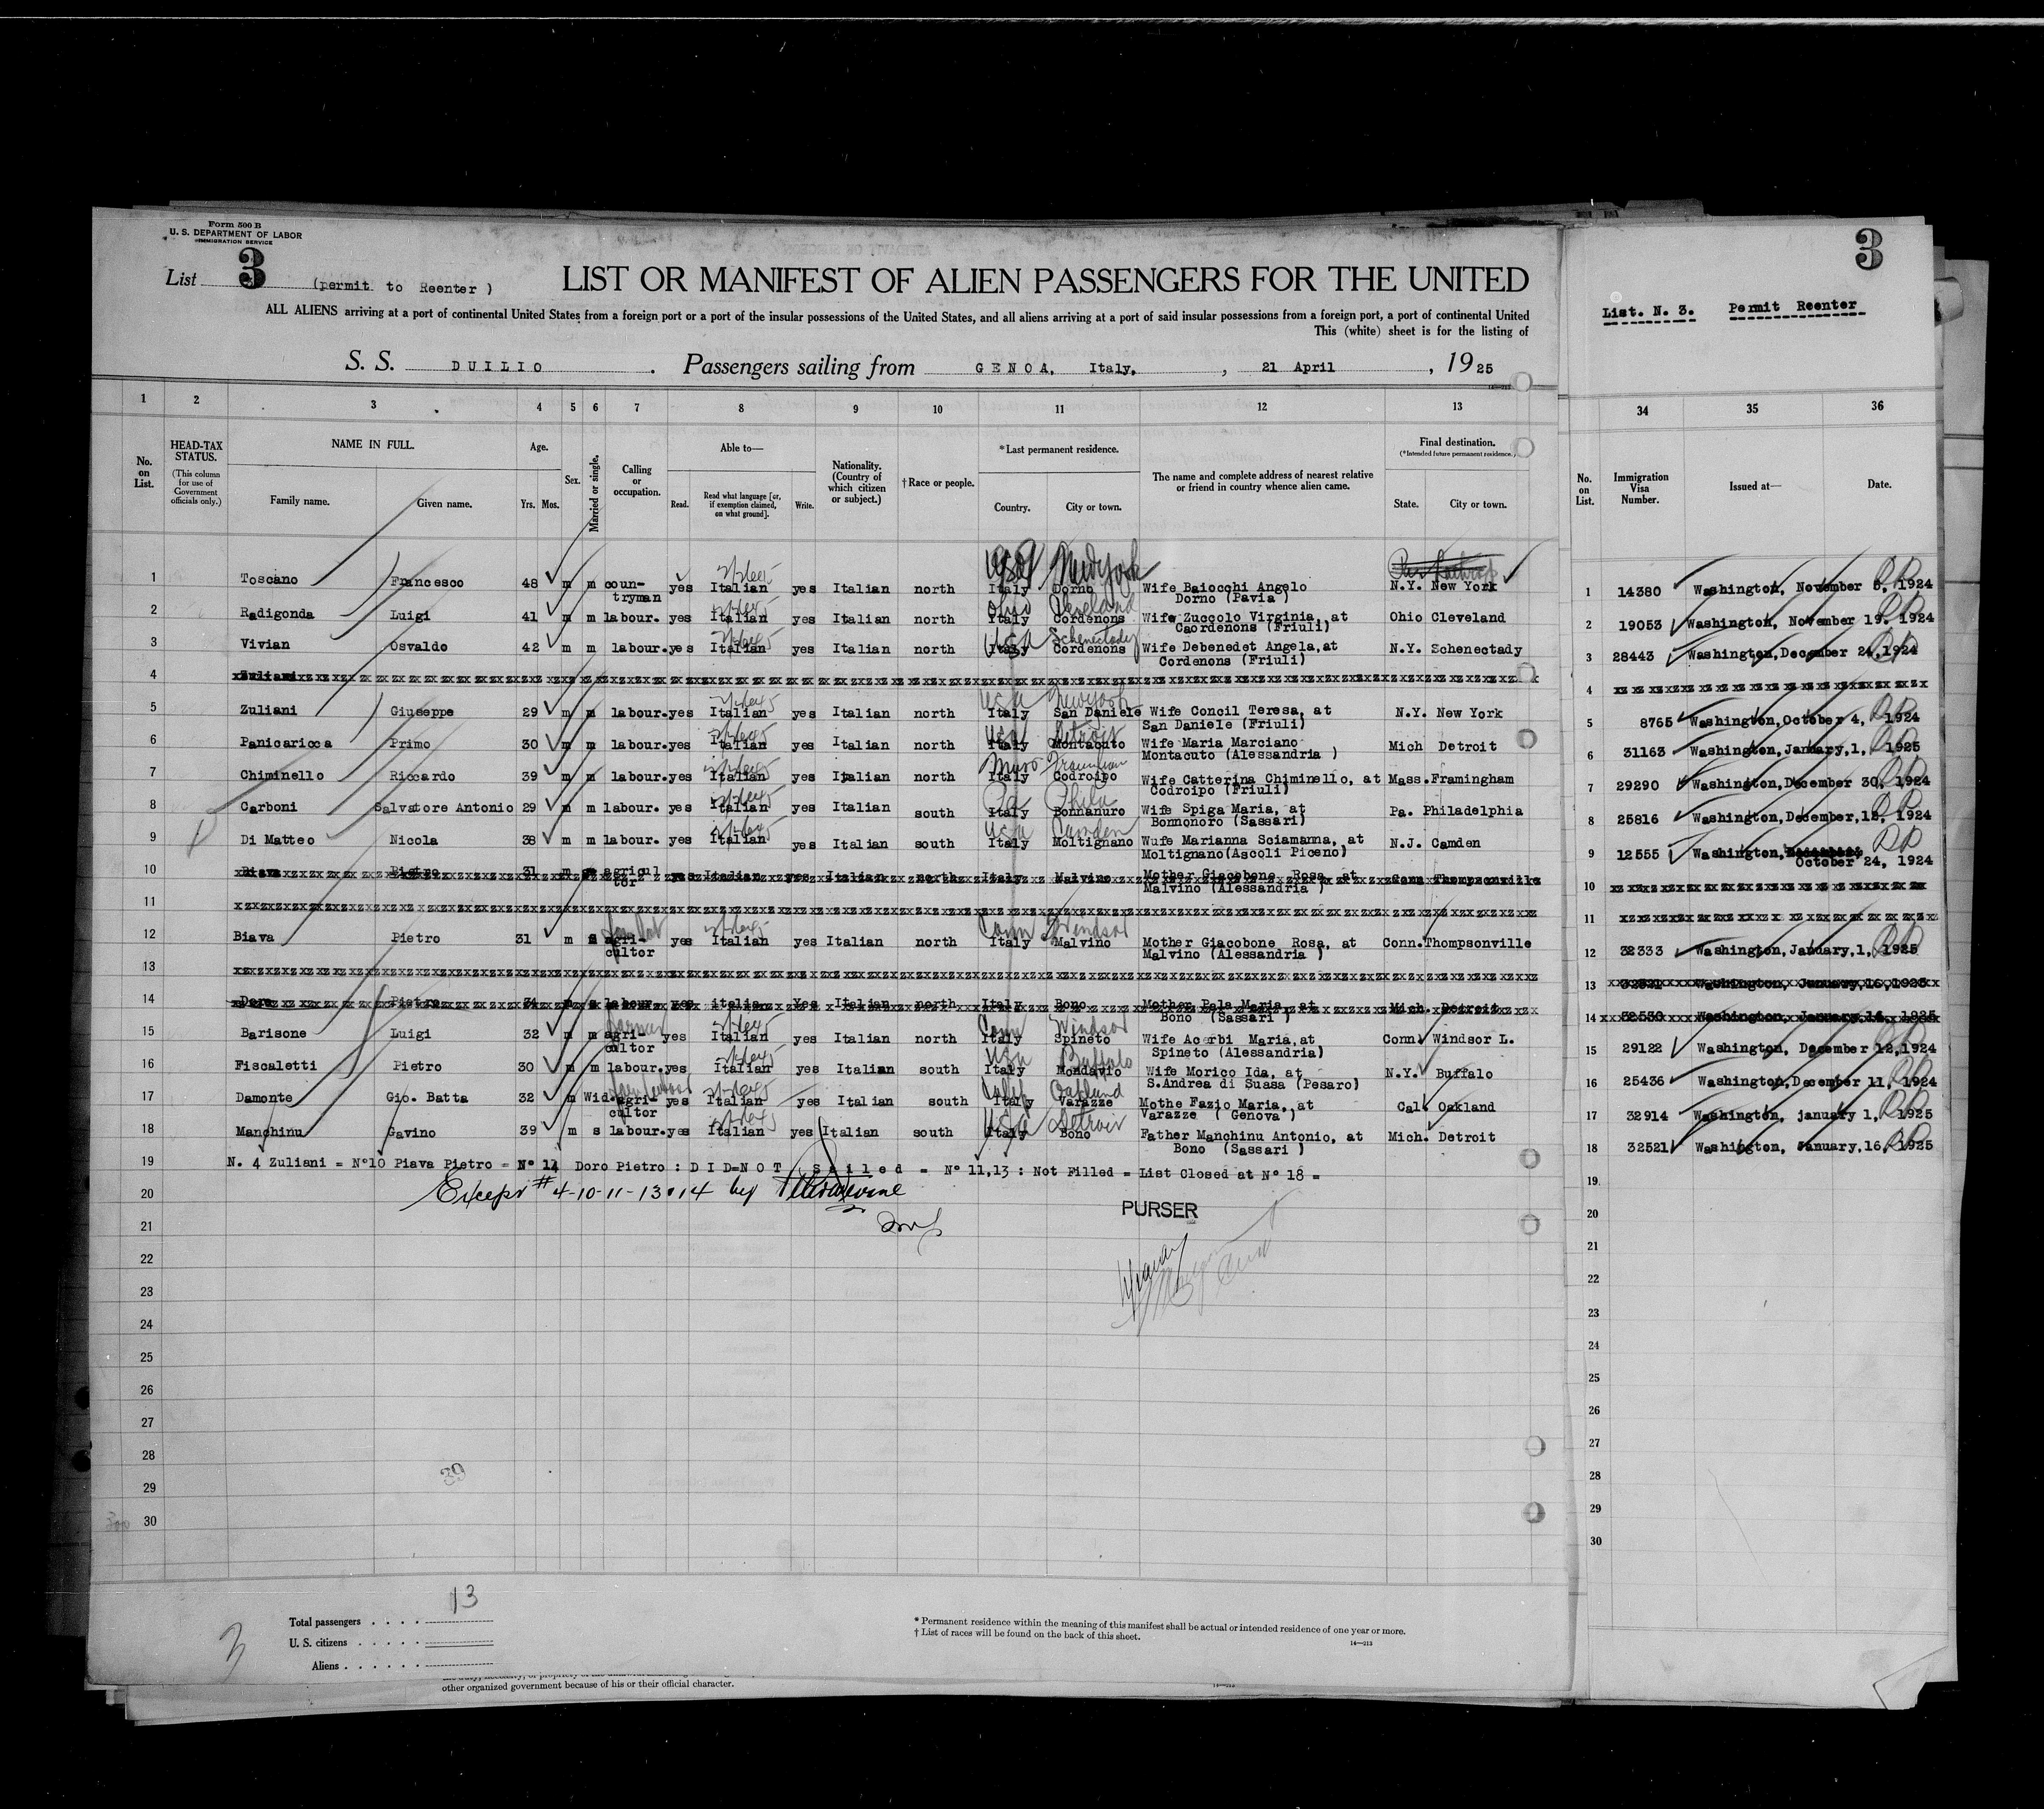 Form 500 B
U. S. DEPARTMENT OF LABOR
IMMIGRATION SERVICE
List 3 (permit to Reenter )
LIST OR MANIFEST OF ALIEN PASSENGERS FOR THE UNITED
ALL ALIENS arriving at a port of continental United States from a foreign port or a port of the insular possessions of the United States, and all aliens arriving at a port of said insular possessions from a foreign port, a port of continental United
This (white) sheet is for the listing of
S. S. DUILIO. Passengers sailing from GENOA, Italy, , 21 April , 1925
1 2 3 4 5 6 7 8 9 10 11 12 13
No. on List.
HEAD-TAX STATUS.
(This column for use of Government officials only.)
NAME IN FULL.
Family name. Given name.
Age.
Yrs. Mos.
Sex.
Married or single.
Calling or occupation.
Able to—
Read. Read what language [or, if exemption claimed, on what ground]. Write.
Nationality. (Country of which citizen or subject.)
†Race or people.
*Last permanent residence.
Country. City or town.
The name and complete address of nearest relative or friend in country whence alien came.
Final destination.
(*Intended future permanent residence.)
State. City or town.
1 Toscano Francesco 48 m m coun-tryman yes Italian yes Italian north Italy Dorno Wife Baiocchi Angelo Dorno (Pavia ) N.Y. New York
USA New York
2 Radigonda Luigi 41 m m labour. yes Italian yes Italian north Italy Cordenons Wife Zuccolo Virginia, at Caordenons (Friuli) Ohio Cleveland
Ohio Cleveland
3 Vivian Osvaldo 42 m m labour. yes Italian yes Italian north Italy Cordenons Wife Debenedet Angela, at Cordenons (Friuli) N.Y. Schenectady
USA Schenectady
4 Zuliani
5 Zuliani Giuseppe 29 m m labour. yes Italian yes Italian north Italy San Daniele Wife Concil Teresa, at San Daniele (Friuli) N.Y. New York
USA New York
6 Panicaricca Primo 30 m m labour. yes Italian yes Italian north Italy Montacuto Wife Maria Marciano Montacuto (Alessandria ) Mich Detroit
USA Detroit
7 Chiminello Riccardo 39 m m labour. yes Italian yes Italian north Italy Codroipo Wife Catterina Chiminello, at Codroipo (Friuli) Mass. Framingham
Mass
8 Carboni Salvatore Antonio 29 m m labour. yes Italian yes Italian south Italy Bonnanuro Wife Spiga Maria, at Bonnonoro (Sassari) Pa. Philadelphia
Pa Phila
9 Di Matteo Nicola 38 m m labour. yes Italian yes Italian south Italy Moltignano Wufe Marianna Sciamanna, at Moltignano(Ascoli Piceno) N.J. Camden
USA Camden
10 Biava Pietro 31 m agricul tor yes Italian yes Italian north Italy Malvino Mother Giacobone Rosa, at Malvino (Alessandria ) Conn Thompsonville
11
12 Biava Pietro 31 m s agri-cultor yes Italian yes Italian north Italy Malvino Mother Giacobone Rosa, at Malvino (Alessandria ) Conn. Thompsonville
Conn Windsor
13
14 Doro Pietro 34 m s labour. yes italia Yes Italian north Italy Bono Mother Pala Maria, at Bono (Sassari ) Mich. Detroit
15 Barisone Luigi 32 m m agri-cultor yes Italian yes Italian north Italy Spineto Wife Acerbi Maria, at Spineto (Alessandria) Conn. Windsor L.
Conn Windsor
16 Fiscaletti Pietro 30 m m labour. yes Italian yes Italian south Italy Mondavio Wife Morico Ida, at S.Andrea di Suasa (Pesaro) N.Y. Buffalo
USA Buffalo
17 Damonte Gio. Batta 32 m Wid. agri-cultor yes Italian yes Italian south Italy Varazze Mothe Fazio Maria, at Varazze ( Genova ) Cal. Oakland
Calif Oakland
18 Manchinu Gavino 39 m s labour. yes Italian yes Italian south Italy Bono Father Manchinu Antonio, at Bono (Sassari ) Mich. Detroit
USA Detroit
19 N. 4 Zuliani = N°10 Piava Pietro = N° 14 Doro Pietro : DID=NOT Sailed = N° 11,13 : Not Filled = List Closed at N° 18 =
20 Except # 4-10-11-13-14 by
21
PURSER
22
23
24
25
26
27
28
29
30
39
Total passengers . . . . 13
U. S. citizens . . . . .
Aliens . . . . . .
3
* Permanent residence within the meaning of this manifest shall be actual or intended residence of one year or more.
† List of races will be found on the back of this sheet.
14—313
other organized government because of his or their official character.
3
List. N. 3. Permit Reenter
34 35 36
No. on List. Immigration Visa Number. Issued at— Date.
1 14380 Washington, November 5, 1924
2 19053 Washington, November 19. 1924
3 28443 Washington, December 24, 1924
4
5 8765 Washington, October 4, 1924
6 31163 Washington, January, 1, 1925
7 29290 Washington, December 30, 1924
8 25816 Washington, December, 12, 1924
9 12555 Washington, October 24, 1924
10
11
12 32333 Washington, January, 1, 1925
13 32521 Washington, January, 16, 1925
14 32530 Washington, January 14, 1925
15 29122 Washington, December 12, 1924
16 25436 Washington, December 11, 1924
17 32914 Washington, january 1, 1925
18 32521 Washington, January, 16, 1925
19
20
21
22
23
24
25
26
27
28
29
30